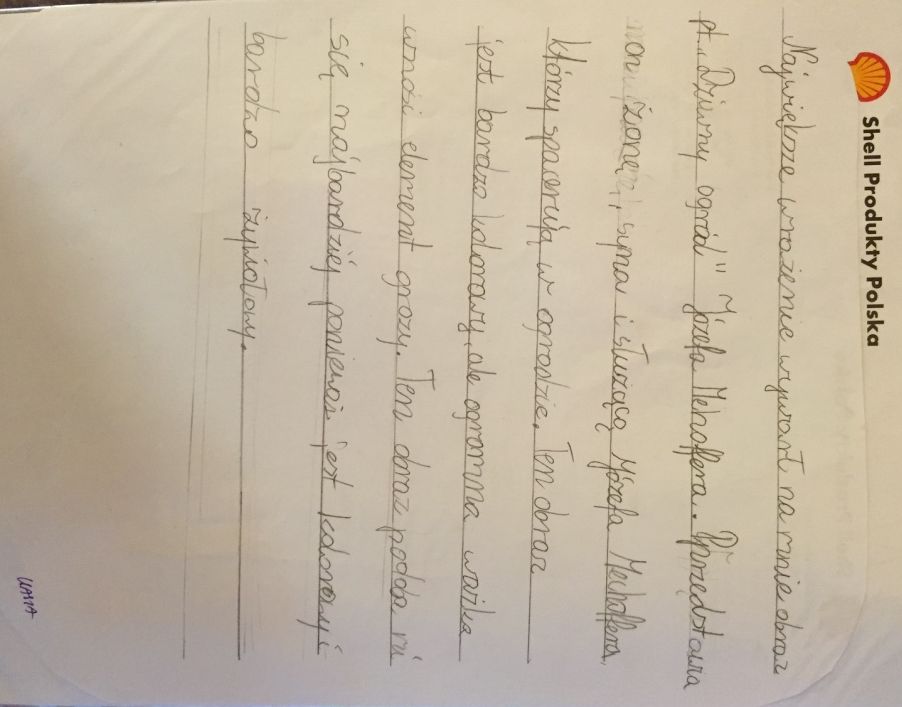 Shell Produkty Polska
Największe wrażenie wywarł na mnie obraz
pt. „Dziwny ogród" Józefa Mehoffera. Przedstawia
żonę, syna i służącą Józefa Mehoffera,
którzy spacerują w ogrodzie. Ten obraz
jest bardzo kolorowy, ale ogromna ważka
wnosi element grozy. Ten obraz podoba mi
się najbardziej ponieważ jest kolorowy i
bardzo żywiołowy.